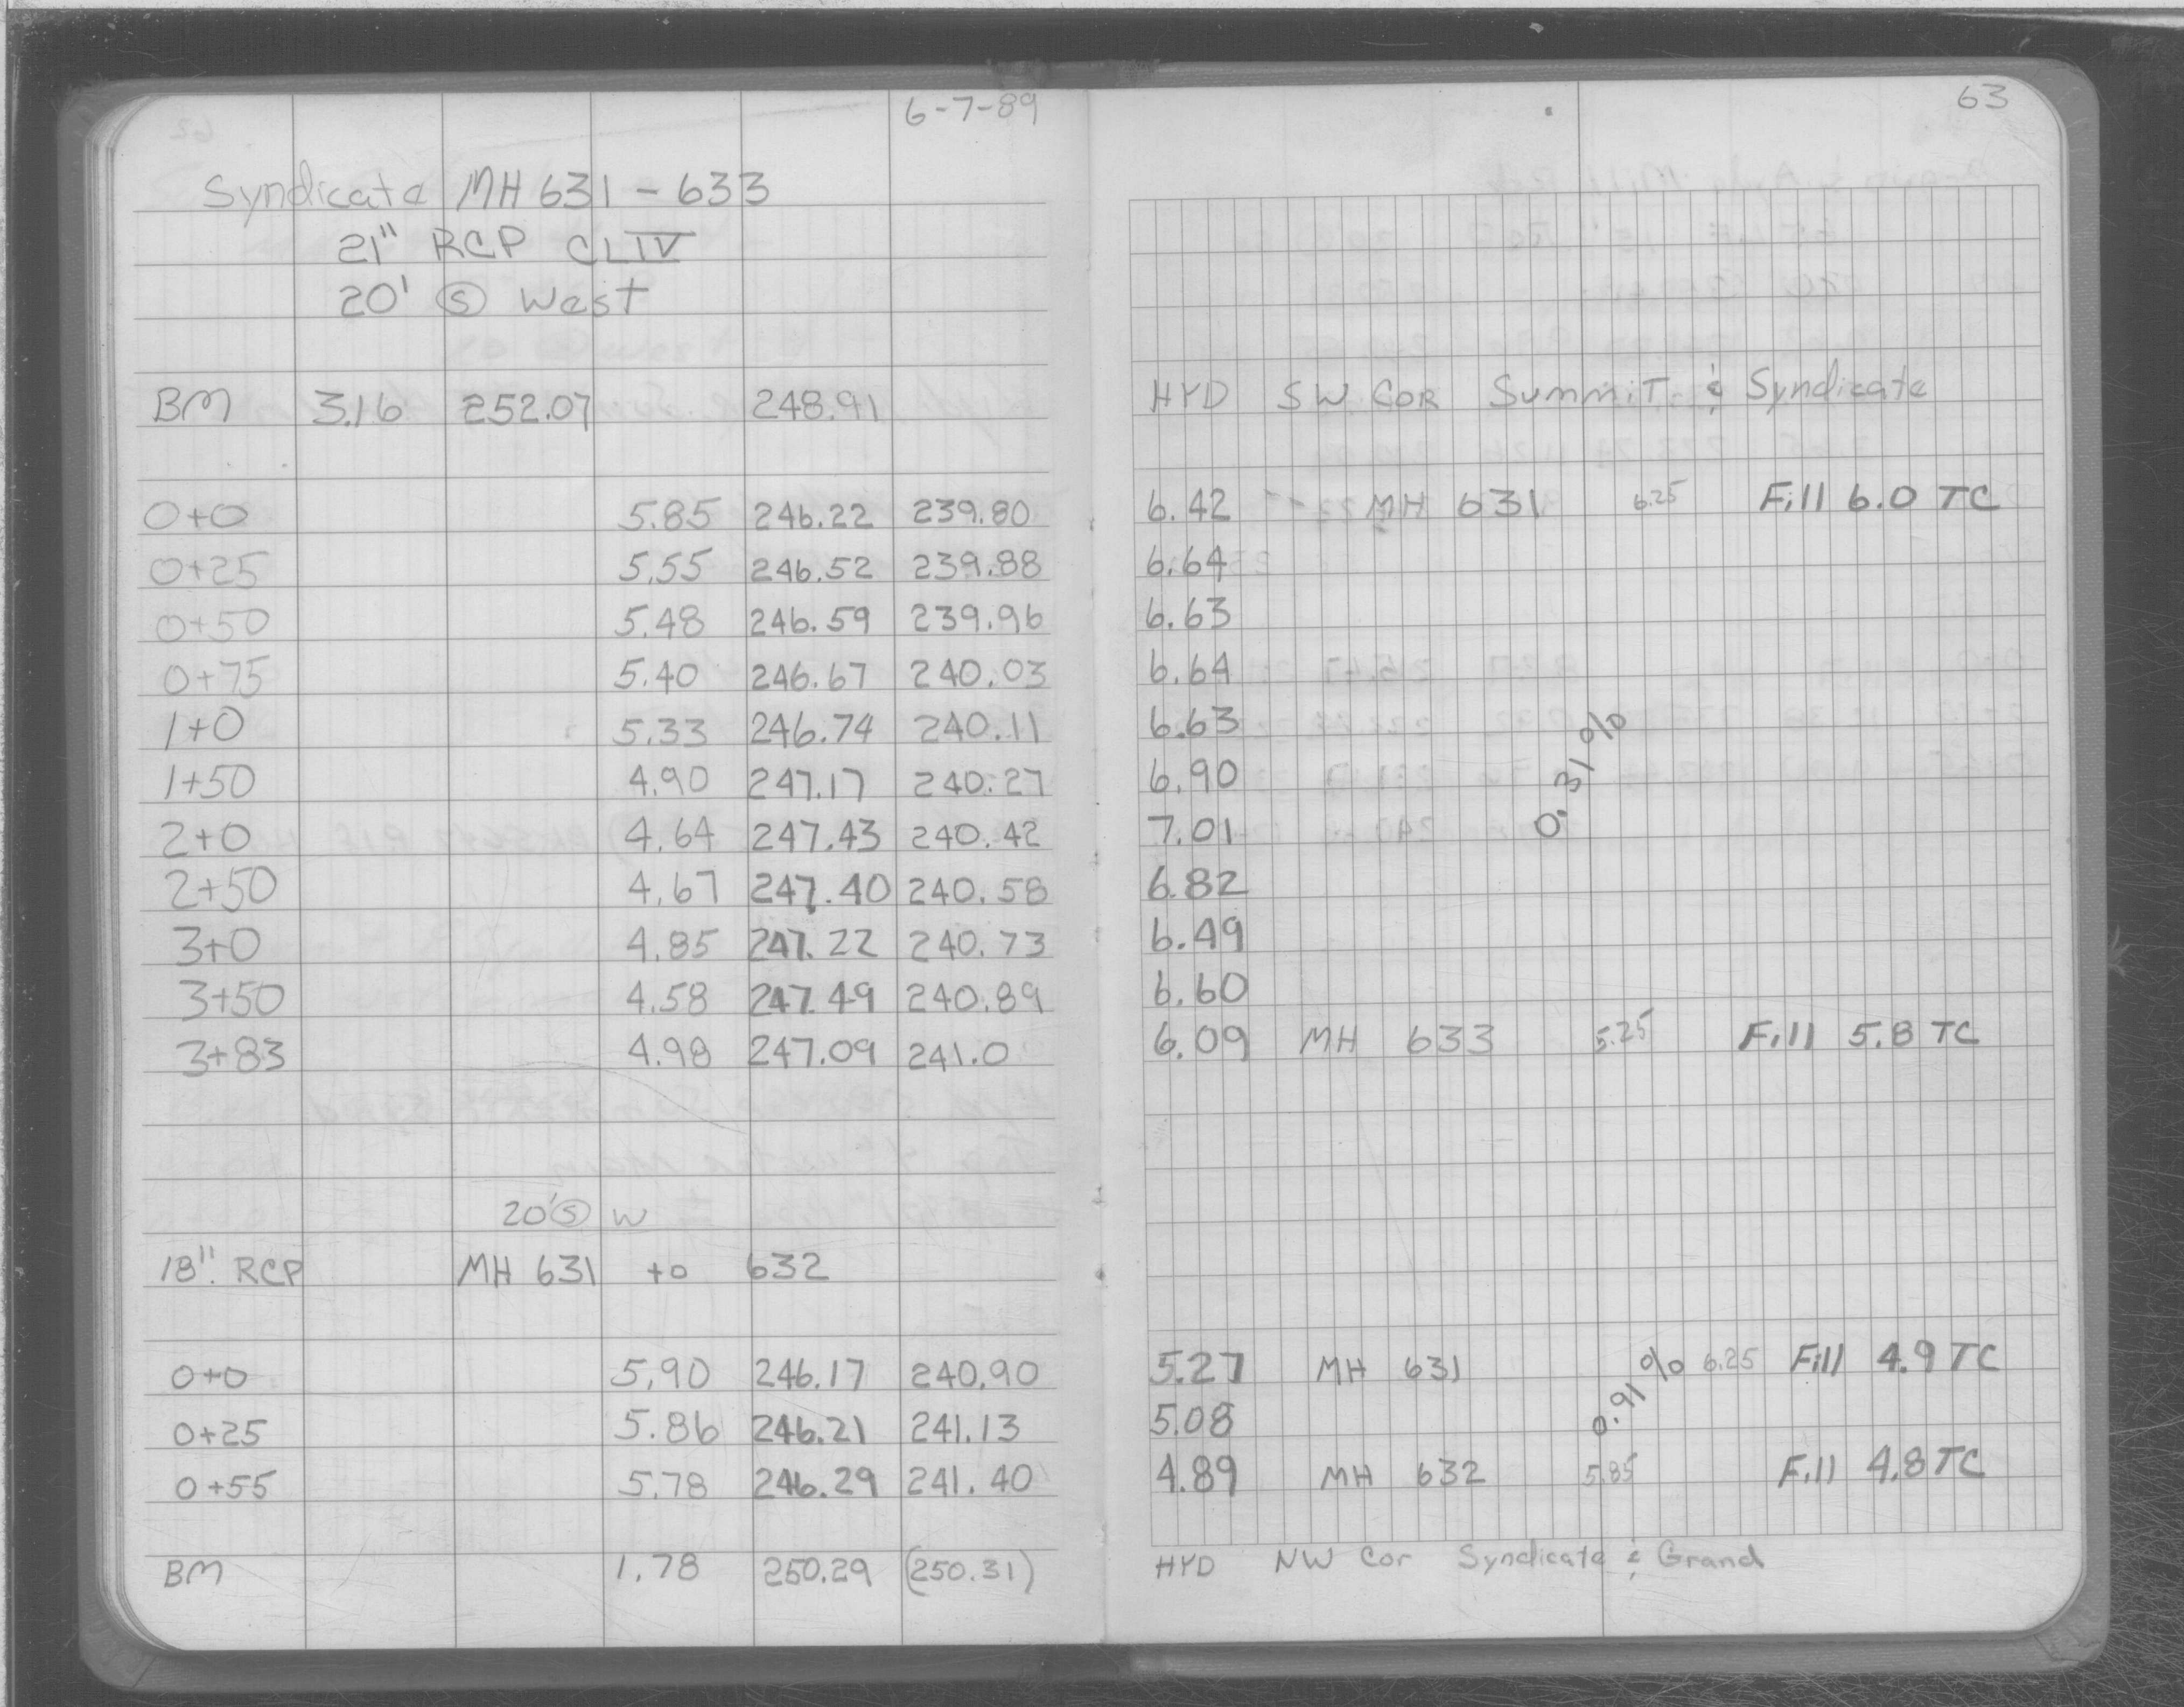 6-7-89 63
Syndicate MH 631 - 633
21" RCP CL IV
20' Ⓢ West
BM 3.16 252.07 248.91 HYD SW COR SummiT & Syndicate
0+0 5.85 246.22 239.80 6.42 -- MH 631 6.25 Fill 6.0 TC
0+25 5.55 246.52 239.88 6.64
0+50 5.48 246.59 239.96 6.63
0+75 5.40 246.67 240.03 6.64
1+0 5.33 246.74 240.11 6.63
1+50 4.90 247.17 240.27 6.90
0.31%
2+0 4.64 247.43 240.42 7.01
2+50 4.67 247.40 240.58 6.82
3+0 4.85 247.22 240.73 6.49
3+50 4.58 247.49 240.89 6.60
3+83 4.98 247.09 241.0 6.09 MH 633 5.25 Fill 5.8 TC
20' Ⓢ W
18" RCP MH 631 to 632
0+0 5.90 246.17 240.90 5.27 MH 631 6.25 Fill 4.9 TC
0.91%
0+25 5.86 246.21 241.13 5.08
0+55 5.78 246.29 241.40 4.89 MH 632 5.85 Fill 4.8 TC
BM 1.78 250.29 (250.31) HYD NW Cor Syndicate & Grand